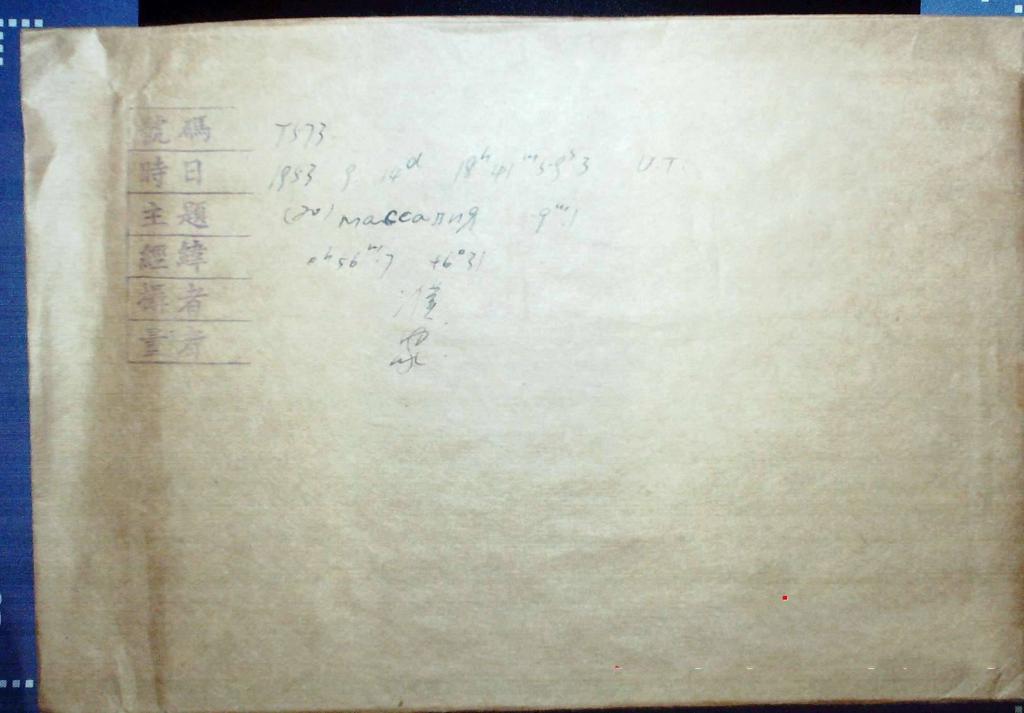 號碼 T573
時日 1953 9 14ᵈ 18ʰ 41ᵐ 59ˢ3 U.T.
主題 (20) массалия 9ᵐ.1
經緯 0ʰ56ᵐ.7 +6°31
操者
量者